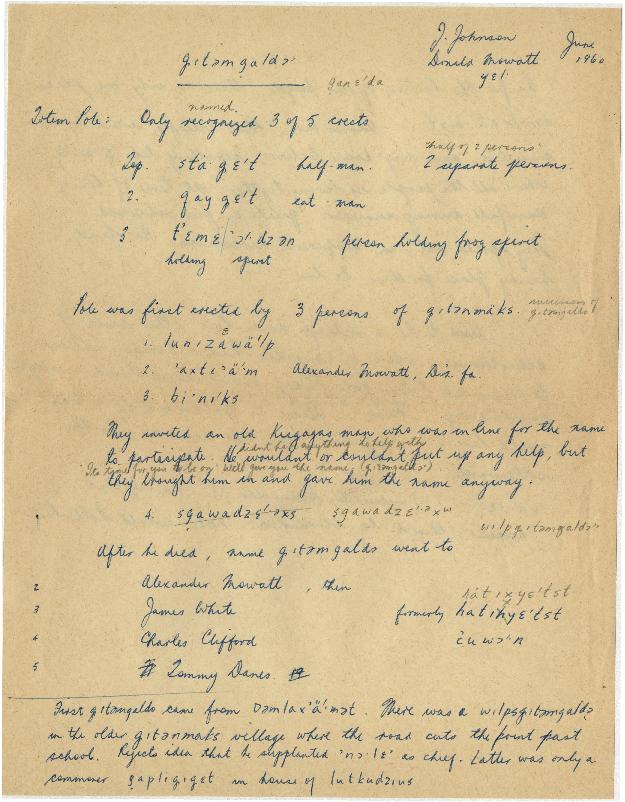 J. Johnson
June 1960
Donald Mowatt
yɛl
gɪtəmgaldəˑ
ganɛ'da
named
Totem Pole: Only recognized 3 of 5 crests
"half of 2 persons"
Top. sta·gɛ't half-man. 2 separate persons.
2. gay gɛ't eat man
3 person holding frog spirit
holding spirit
Pole was first erected by 3 persons of gɪtənmáks.
succession of gɪtəmgaldə
1. lunɪzawä'lp
2. 'axtɪ·'ä'm Alexander Mowatt, Diz. fa.
3. bi·niks
They invited an old Kisgagas man who was in line for the name
didn't have anything to help with
to participate. He wouldn't or couldn't put up any help, but
"Its time for you to be on. We'll give you the name, (gɪtəmgaldə)
they brought him in and gave him the name anyway.
4. sgawadzɛ'·əxs sgawadzɛ'·əxw
wilpgɪtəmgaldəˑ
After he died, name gɪtəmgaldə went to
2 Alexander Mowatt, then
hátɪxyɛ'tst
3 James White formerly hatɪhyɛ'tst
4 Charles Clifford
5 Tommy Danes
First gɪtəmgaldə came from Dəmlax'ä'mət. There was a wilpsgɪtəmgaldə
in the older gɪtənmáks village where the road cuts the point past
school. Rejects idea that he supplanted 'nə·lɛ' as chief. Latter was only a
commoner gaplɪgɪgɛt in house of lutkudzɪus